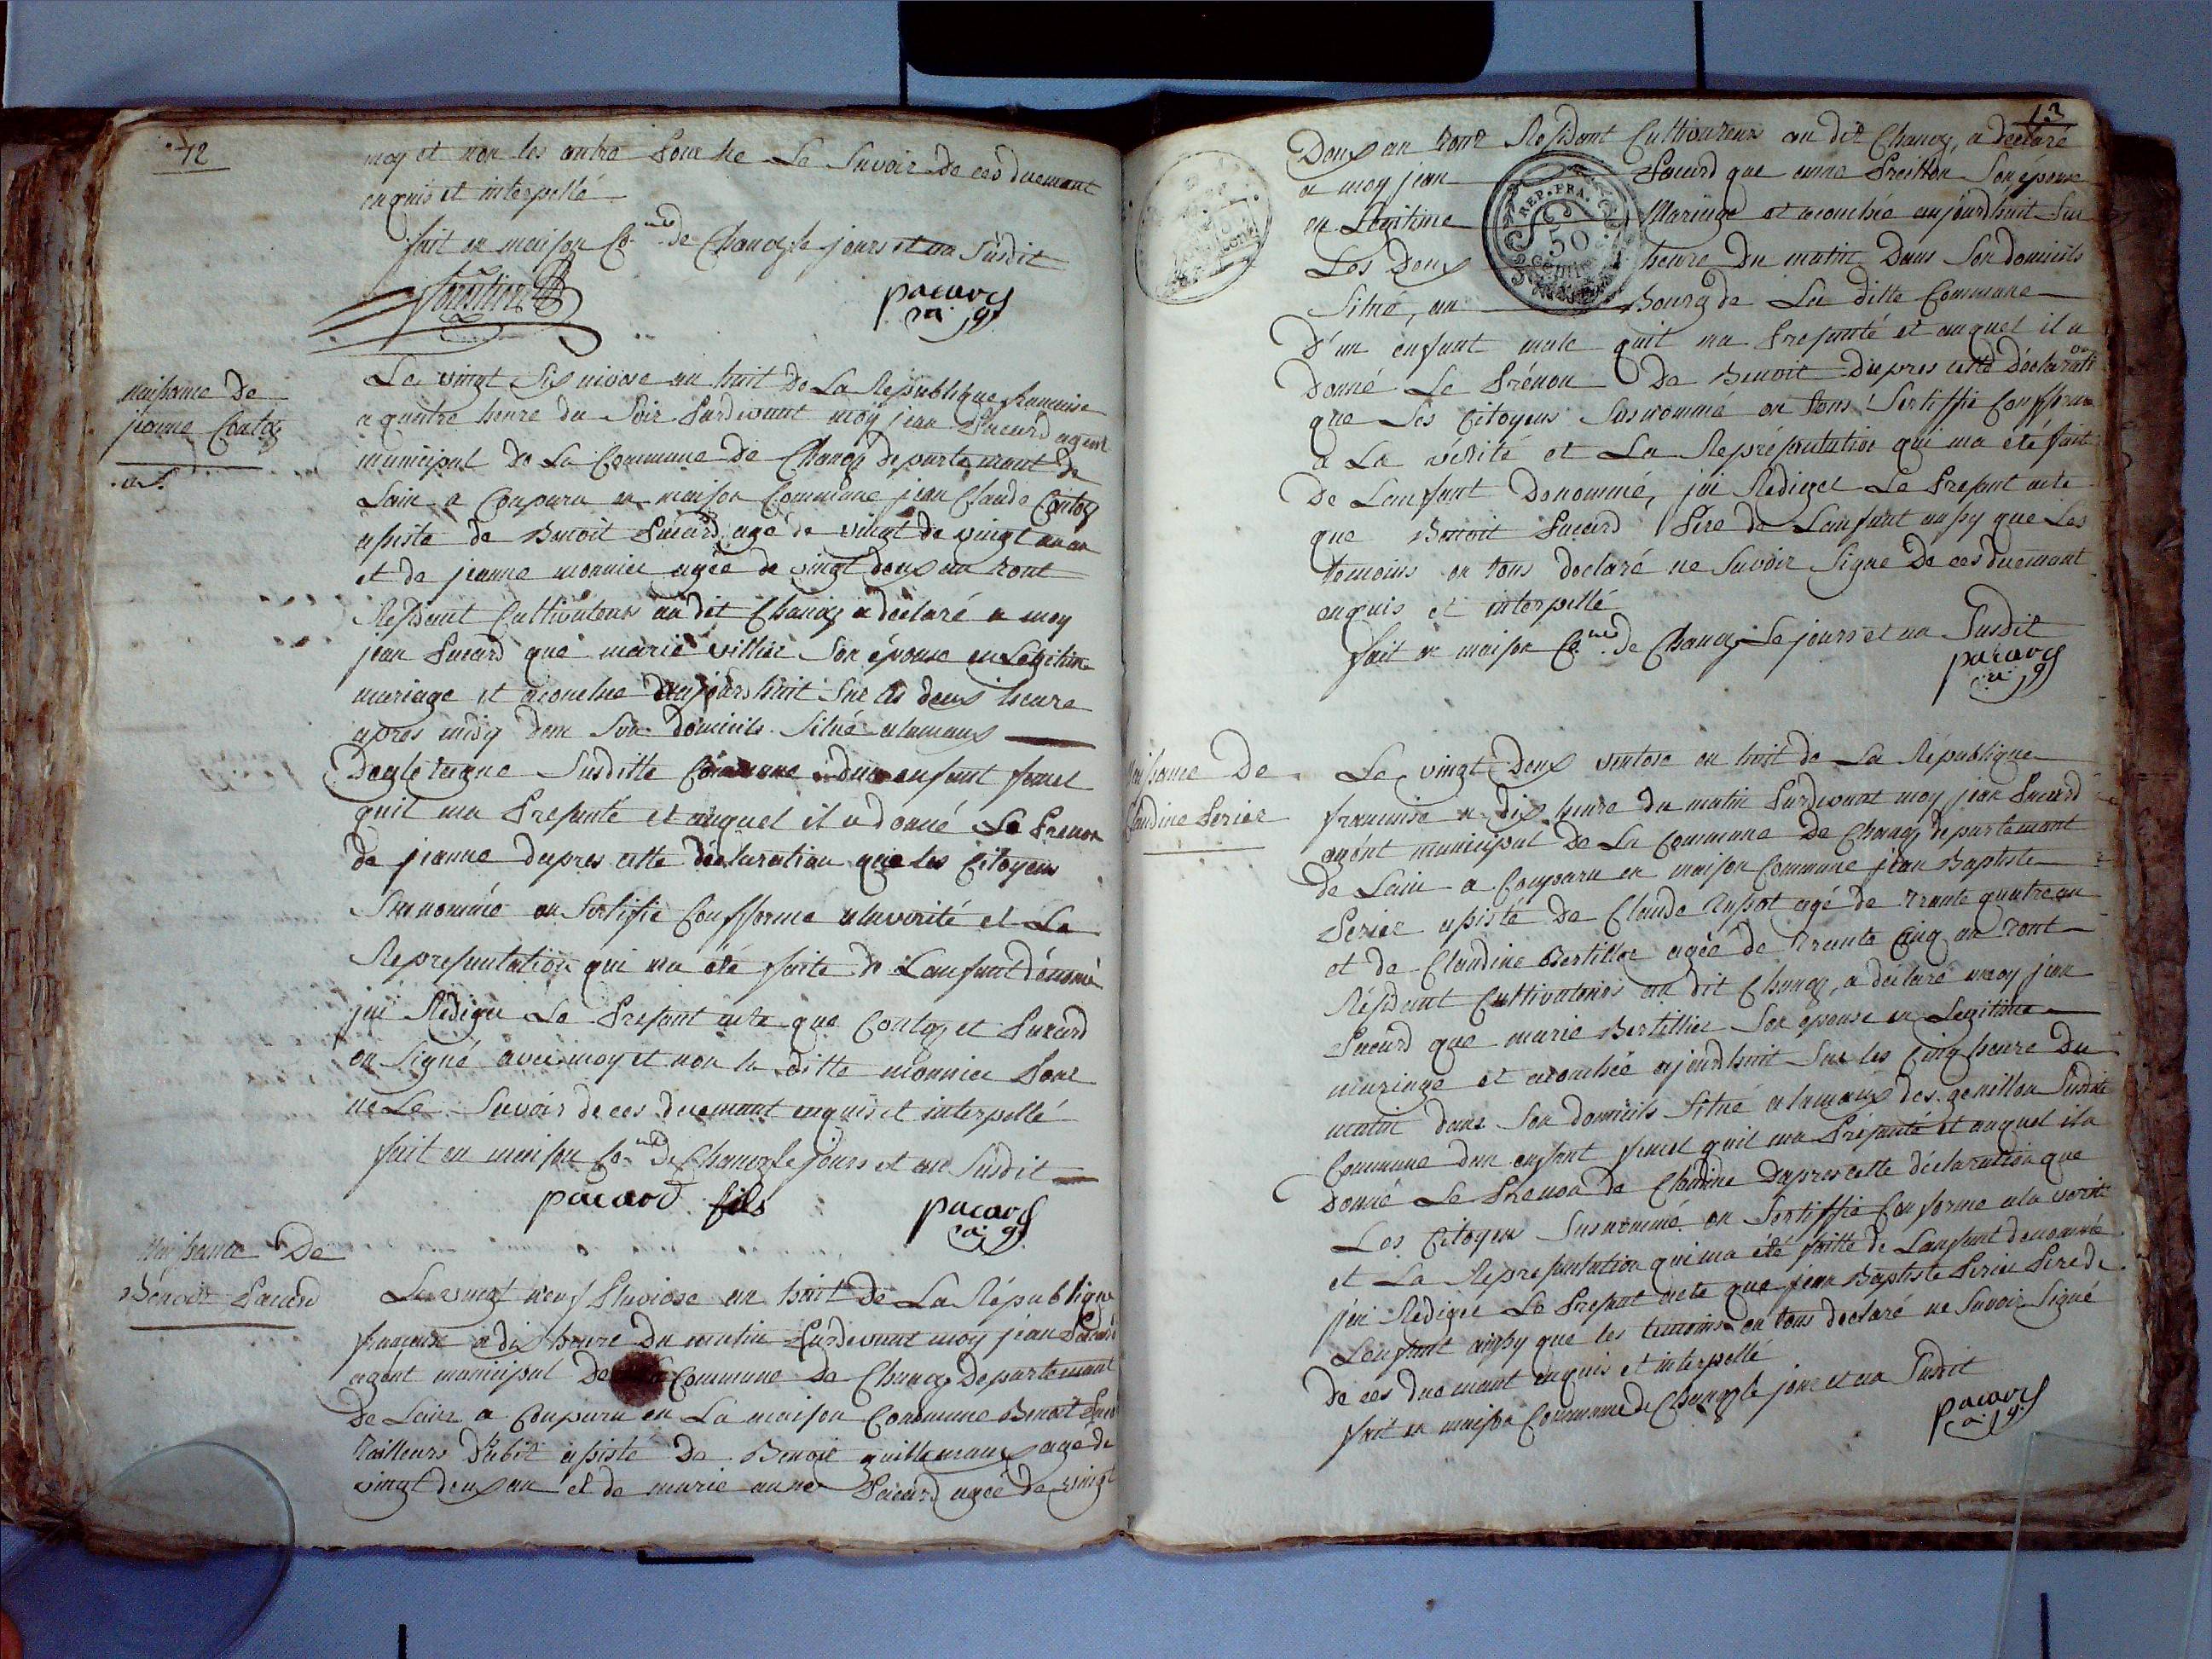 12
moy et non les autre pour ne Le Savoir de ces duemant
enquis et interpellé
fait en maison Co.ne de Chanoz le jours et an Susdit
pacard
a. g.
naissance De
jeanne Contoz
Le vingt Six nivose an huit de La République francaise
a quatre heure du Soir Pardevant moy jean Pacard agent
municipal de La Commune de Chanoz departemant de
Lain a Conparu en maison Commune jean Claude Contoz
assisté de Benoit Pacard agé de vingt de vingt un an
et de jeanne monnier agée de vingt deux an tout
Résidant Cultivateur au dit Chanoz a déclaré a moy
jean Pacard que marie villier Son épouse en Legitime
mariage et acouchée aujourshuit Sur les deux heure
apres midy dans Son domicile Situé alamaux
Susditte Commune dun enfant femel
quil ma Presanté et auquel il a donné Le Prenon
de jeanne dapres cette déclaration que les Citoyens
Susnommé on Sertifié Confforme alaverité et La
Represantation qui ma été faite de Lanfant dénomé
jai Rédigée Le Presant acte que Contoz et Pacard
on Signé avec moy et non la ditte monnier Pour
ne Le Savoir de ces duemant enquis et interpellé
fait en maison Co.ne De Chanoz le jours et an Susdit
pacard fils
pacard
a. g.
Naissance De
Benoit Pacard
Le vingt neuf Pluviose an huit De La République
francaise a dix heure du matin Pardevant moy jean Pacard
agent municipal De La Commune De Chanoz Departemant
De Lain a Conparu en La maison Commune Benoit Pacard
Tailleurs Dabit assisté De Benoit guillemaux agé de
vingt deux an et de marie anne Pacard agée de vingt
13
Deux an tout Résidant Cultivateurs au dit Chanoz, a déclaré
a moy jean Pacard que anne Preillon Son épouse
en Legitime Mariage et acouchée aujourdhuit Sur
Les Deux heure Du matin Dans Son domicile
Situé, au Bourg de La ditte Commune
D'un enfant male quil ma Presanté et auquel il a
donné Le Prénon De Benoit Dapres cette Déclaration
que Les Citoyens Susnommé on tous Sertiffié Confforme
a La vérité et La Représantation qui ma été fait
De Lanffant Denommé, jai Rédigée Le Presant acte
que Benoit Pacard Pere de Lanfant ainsy que Les
temoins on tous declaré ne Savoir Signe De ces duemant
enquis et interpellé
fait en maison Co.ne de Chanoz Le jours et an Susdit
pacard
a. g.
REP. FRA.
50
centimes
Naissance De
Claudine Perier
Le vingt Deux ventose an huit de La République
francaise a dix heure du matin Pardevant moy jean Pacard
agent municipal De La Commune De Chanoz departemant
de Lain a Conparu en maison Commune jean Baptiste
Perier assisté De Claude agé de trante quatre an
et de Claudine Bertillier agée de Trante Cinq an tout
Résidant Cultivateurs au dit Chanoz, a déclaré amoy jean
Pacard que marie Bertillier Son épouse en Legitime
mariage et acouchée ajourdhuit Sur les Cinq heure Du
matin dans Son domicile Situé alamaux des genillon Susdite
Commune dun enfant femel quil ma Présanté et auquel il a
Donné Le Prenon de Claudine Dapres cette déclaration que
Les Citoyen Susnommé on Sertiffié Conforme ala verité
et La Représantation qui ma été faitte de Lanfant denommé
jai Rédigée Le Presant acte que jean Baptiste Perier Pere de
Lenfant ainsy que les temoins on tous declaré ne Savoir Signé
de ces duemant enquis et interpellé
fait en maison Commune de Chanoz le jour et an Susdit
pacard
a. g.